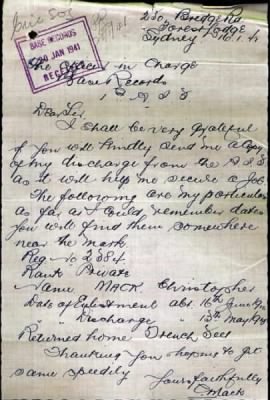 230, Bridge Rd
Forest Lodge
Sydney
BASE RECORDS
30 JAN 1941
The Officer in Charge
Base Records
A I F
Dear Sir
I shall be very grateful
if you will kindly send me a copy
of my discharge from the A.I.F
as it will help me secure a job.
The following are my particulars
as far as I could remember dates
you will find them somewhere
near the mark
Reg No 2384
Rank Private
Name MACK Christopher
Date of Enlistment abt. 16th June
" " Discharge " 13th May
Returned home Trench Feet
Thanking you hoping to get
same speedily
Yours faithfully
C Mack